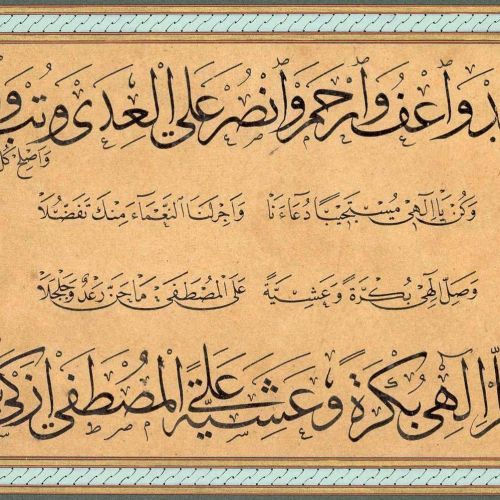 وَاعْفُ وَارْحَمْ وَانْصُرْ عَلَى الْعِدَى وَتُبْ
وَاَصْلِحْ كُلَّ
وَكُنْ يَا اِلٰهِي مُسْتَجِيبًا دُعَاءَنَا وَاجْزِلْنَا النَّعْمَاءَ مِنْكَ تَفَضُّلَا
وَصَلِّ اِلٰهِي بُكْرَةً وَعَشِيَّةً عَلَى الْمُصْطَفَى مَا حَنَّ رَعْدٌ وَجَلْجَلَا
اِلٰهِي بُكْرَةً وَعَشِيَّةً عَلَى الْمُصْطَفَى اَزْكَى